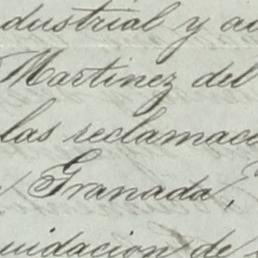 dustrial y ac
Martinez del
las reclamaci
Granada,
uidacion de